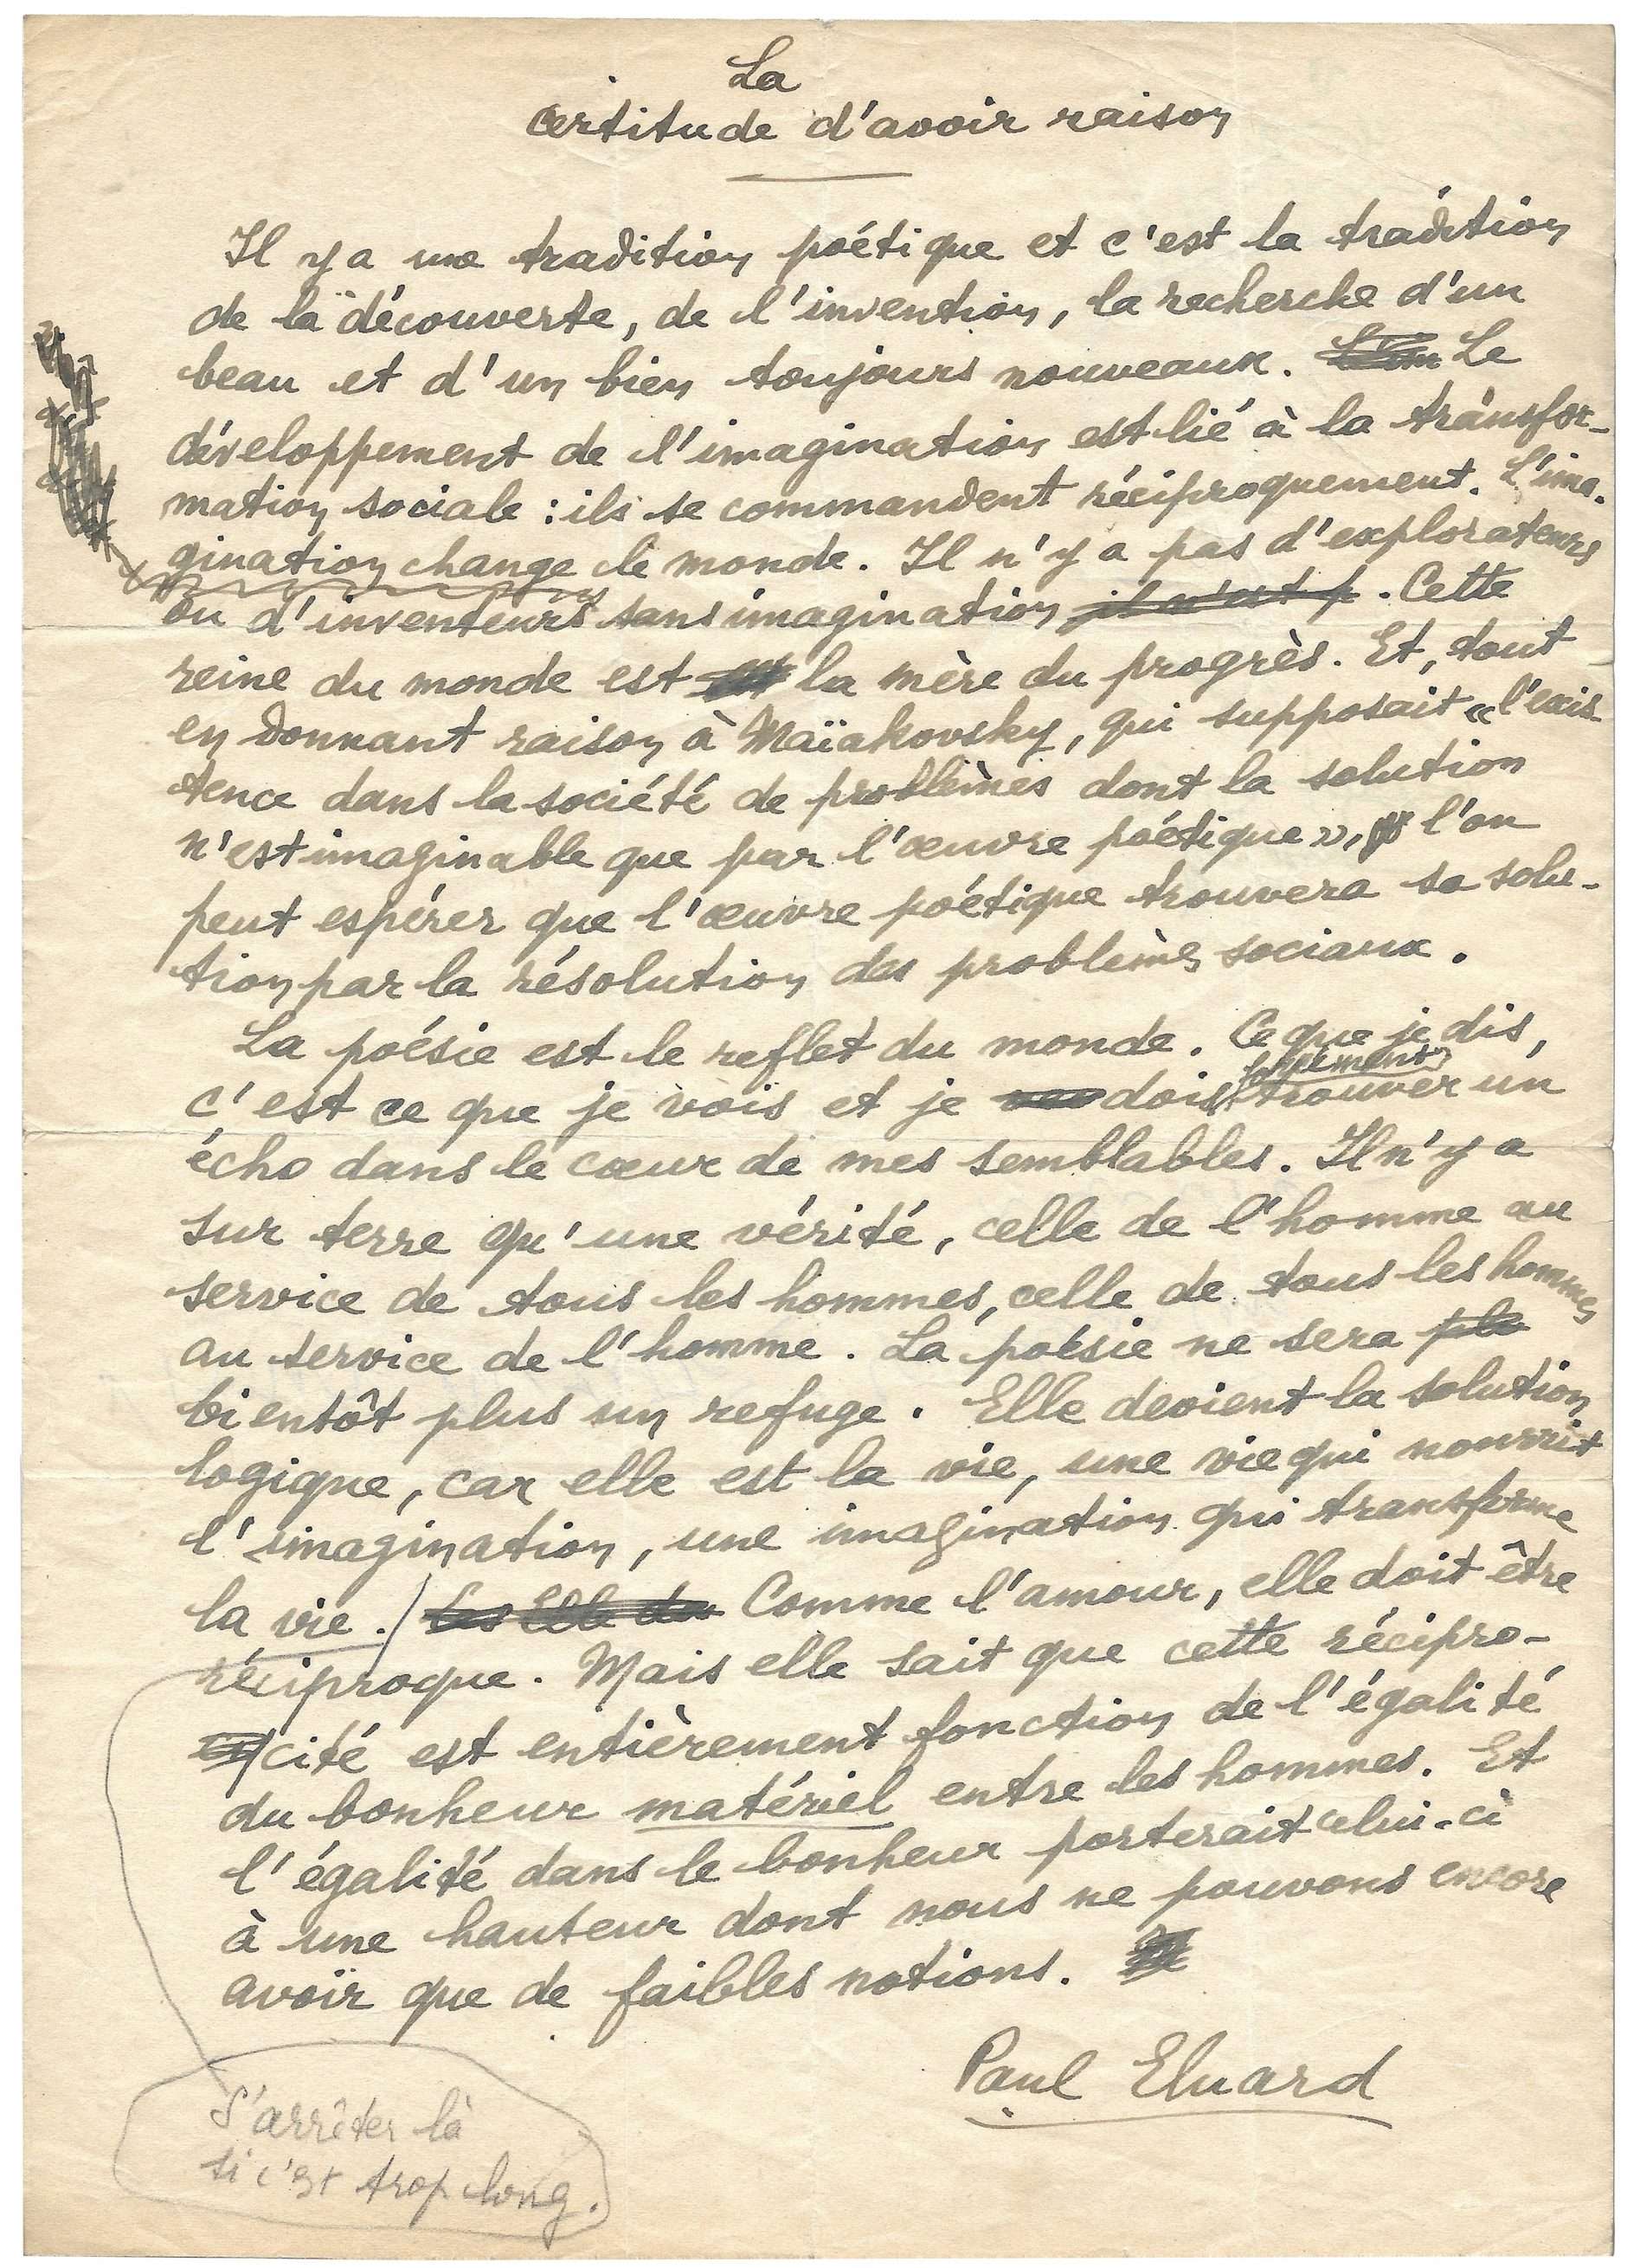 La
certitude d'avoir raison
Il y a une tradition poétique et c'est la tradition
de la découverte, de l'invention, la recherche d'un
beau et d'un bien toujours nouveaux. Le
développement de l'imagination est lié à la transfor-
mation sociale : ils se commandent réciproquement. L'ima-
gination change le monde. Il n'y a pas d'explorateurs
ou d'inventeurs sans imagination il n'est p. Cette
reine du monde est la mère du progrès. Et, tout
en donnant raison à Maïakovsky, qui supposait « l'exis-
tence dans la société de problèmes dont la solution
n'est imaginable que par l'œuvre poétique », l'on
peut espérer que l'œuvre poétique trouvera sa solu-
tion par la résolution des problèmes sociaux.
La poésie est le reflet du monde. Ce que je dis,
c'est ce que je vois et je dois trouver un
écho dans le cœur de mes semblables. Il n'y a
sur terre qu'une vérité, celle de l'homme au
service de tous les hommes, celle de tous les hommes
au service de l'homme. La poésie ne sera plu
bientôt plus un refuge. Elle devient la solution
logique, car elle est la vie, une vie qui nourrit
l'imagination, une imagination qui transforme
la vie. Comme l'amour, elle doit être
réciproque. Mais elle sait que cette récipro-
cité est entièrement fonction de l'égalité
du bonheur matériel entre les hommes. Et
l'égalité dans le bonheur porterait celui-ci
à une hauteur dont nous ne pouvons encore
avoir que de faibles notions.
Paul Eluard
S'arrêter là
si c'est trop long.